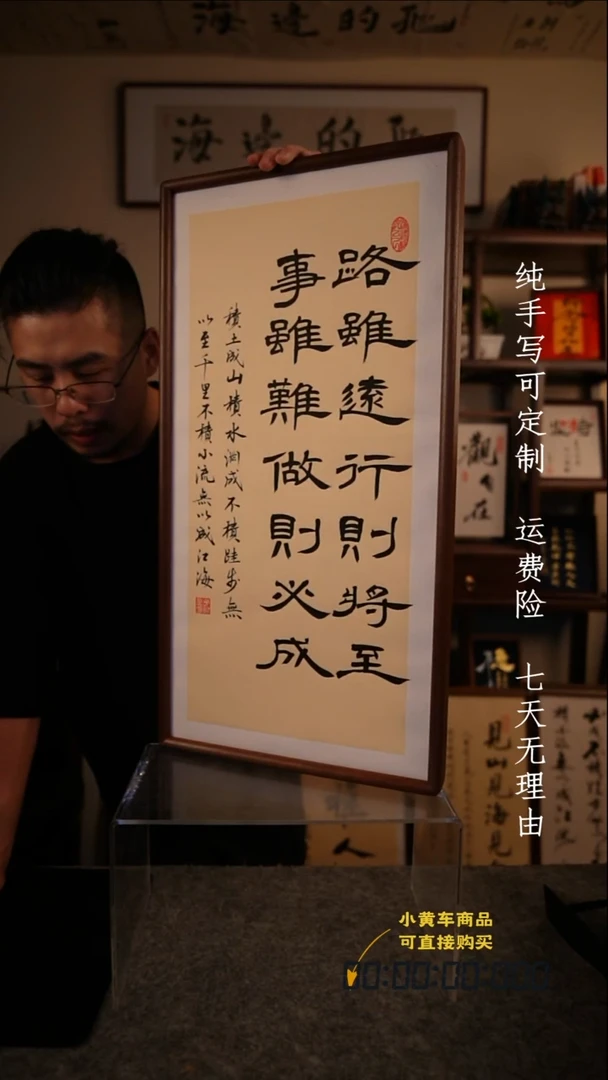 海邊的
海邊的
路雖遠行則將至
事雖難做則必成
積土成山積水渊成不積跬步無
以至千里不積小流無以成江海
纯手写可定制 运费险 七天无理由
觀自在
見山見海見
人
小黄车商品
可直接购买